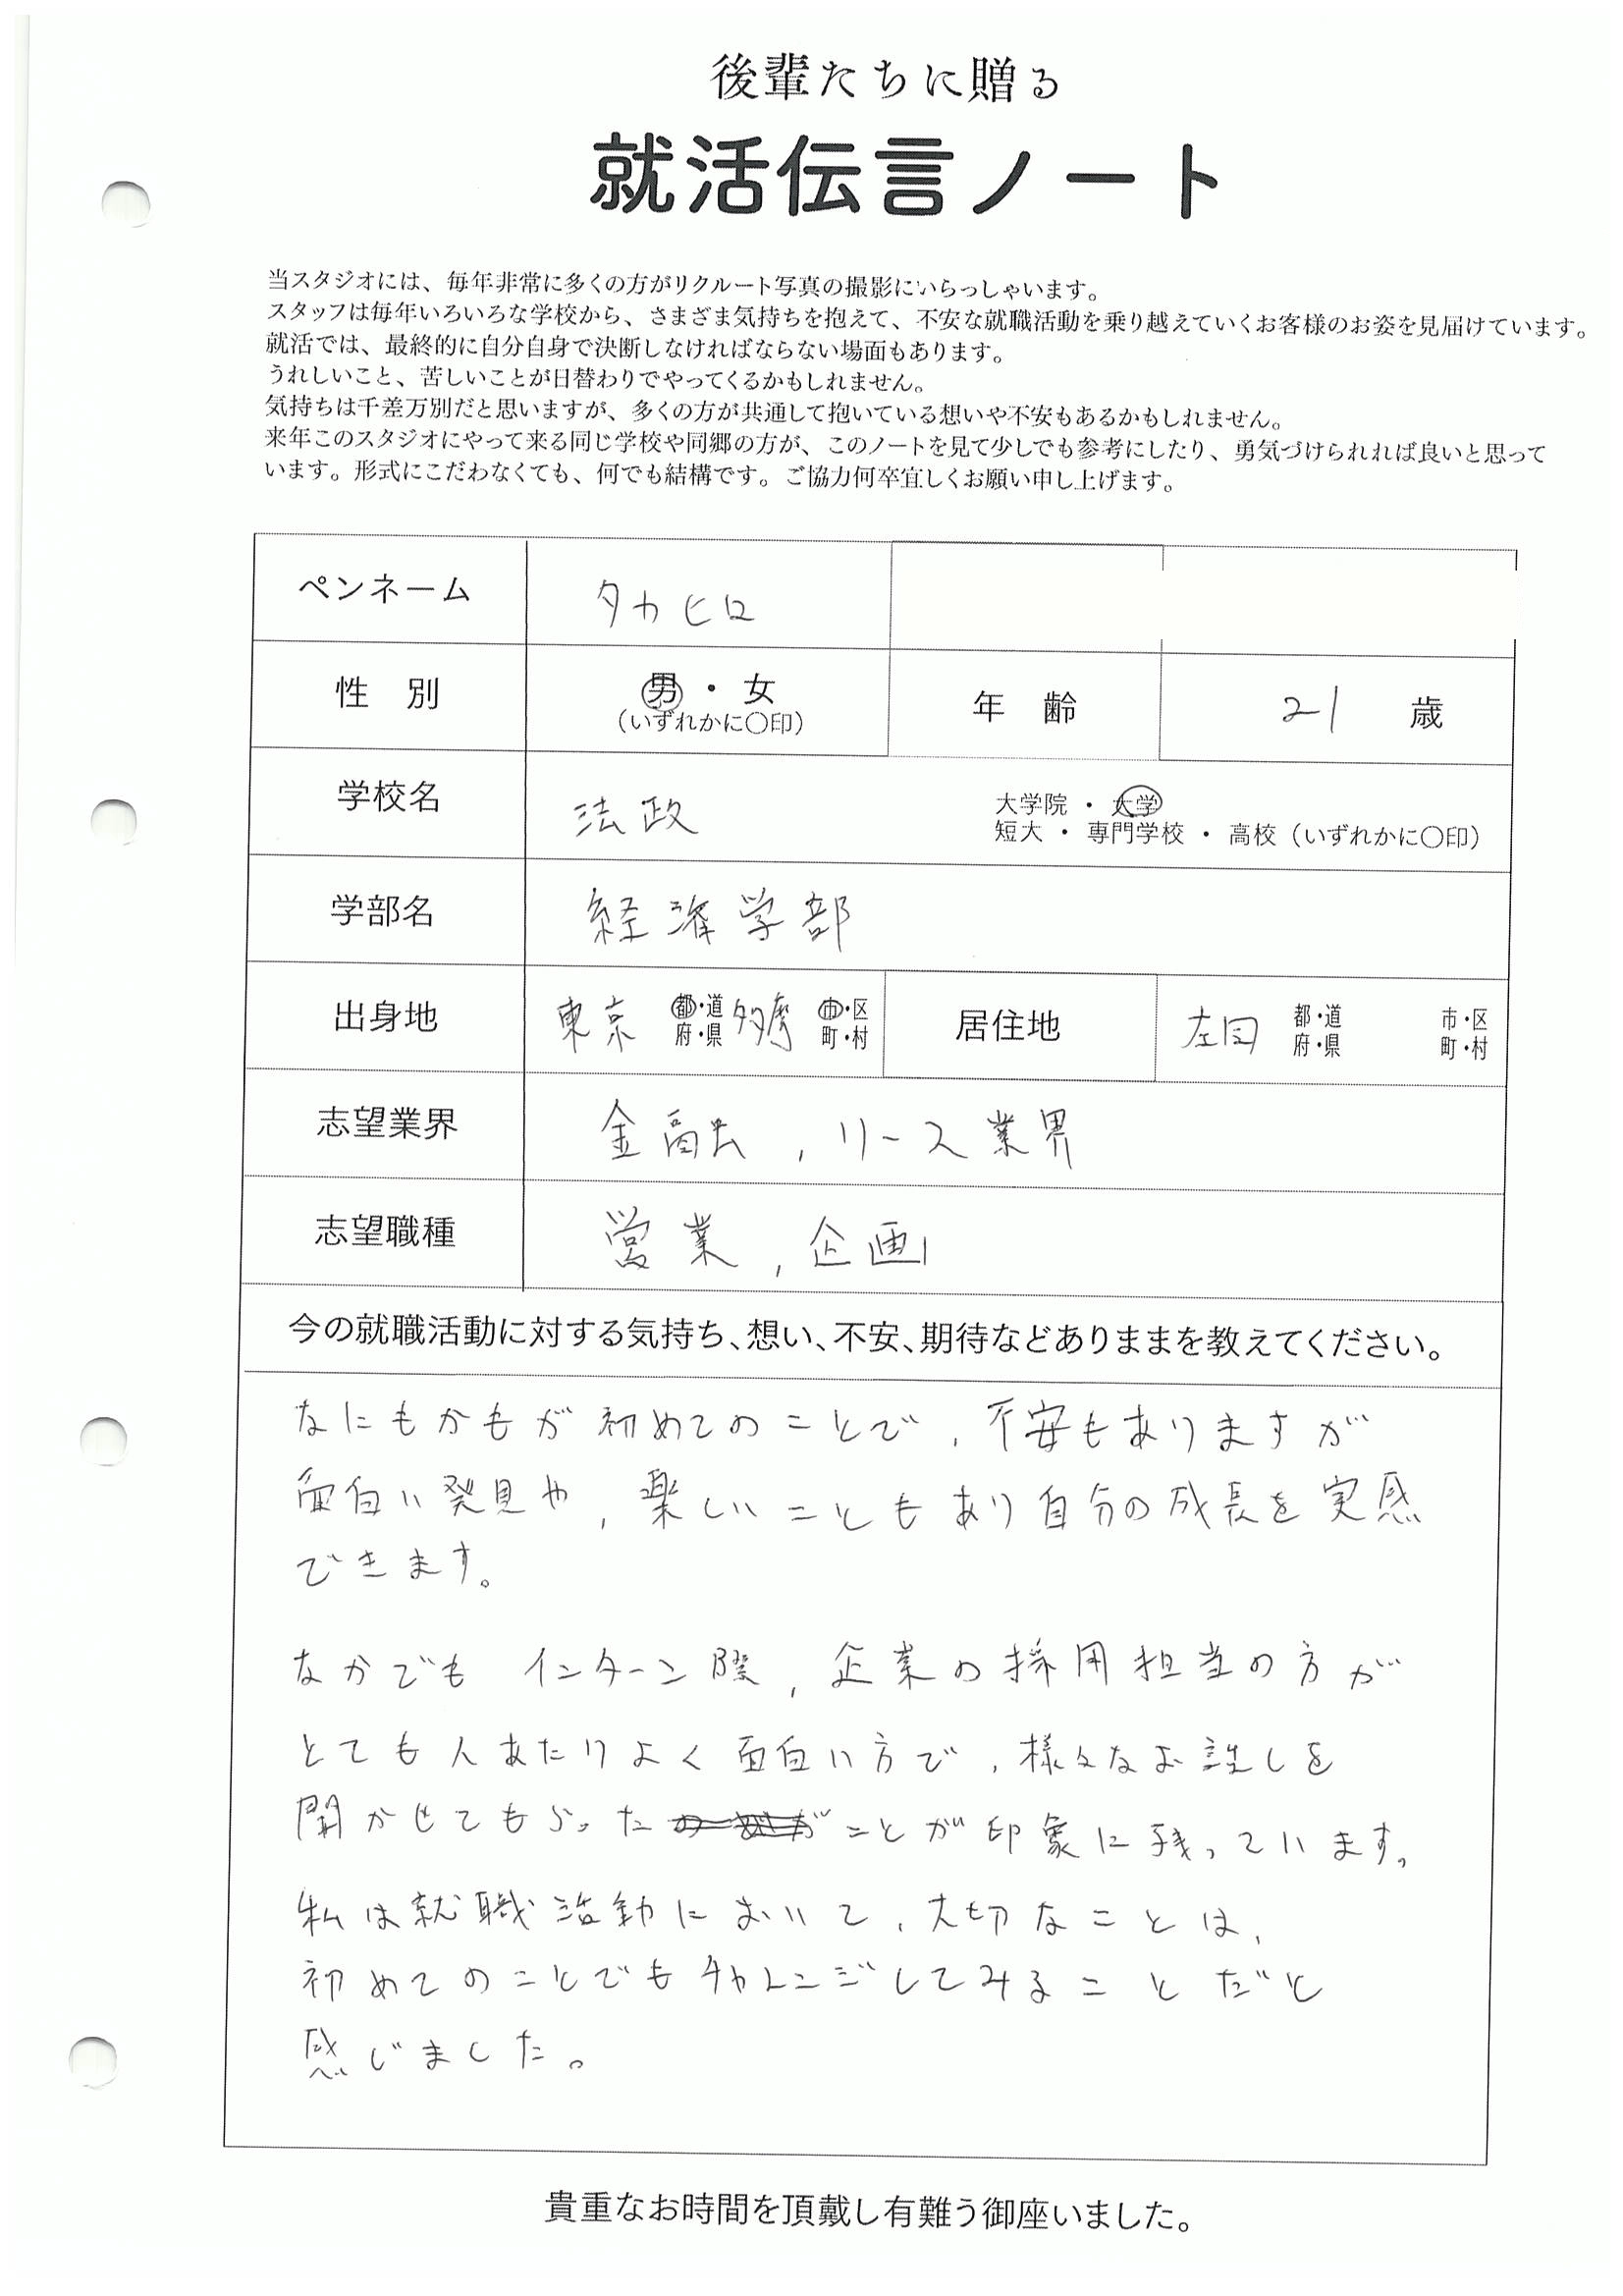 後輩たちに贈る
就活伝言ノート
当スタジオには、毎年非常に多くの方がリクルート写真の撮影にいらっしゃいます。
スタッフは毎年いろいろな学校から、さまざま気持ちを抱えて、不安な就職活動を乗り越えていくお客様のお姿を見届けています。
就活では、最終的に自分自身で決断しなければならない場面もあります。
うれしいこと、苦しいことが日替わりでやってくるかもしれません。
気持ちは千差万別だと思いますが、多くの方が共通して抱いている想いや不安もあるかもしれません。
来年このスタジオにやって来る同じ学校や同郷の方が、このノートを見て少しでも参考にしたり、勇気づけられれば良いと思って
います。形式にこだわなくても、何でも結構です。ご協力何卒宜しくお願い申し上げます。
ペンネーム タカヒロ
性 別 男・女 (いずれかに〇印) 年 齢 21 歳
学校名 法政 大学院・大学
短大・専門学校・高校(いずれかに〇印)
学部名 経済学部
出身地 東京 都・道府・県 多摩 市・区町・村 居住地 左同 都・道府・県 市・区町・村
志望業界 金融,リース業界
志望職種 営業,企画
今の就職活動に対する気持ち、想い、不安、期待などありままを教えてください。
なにもかもが初めてのことで,不安もありますが
面白い発見や,楽しいこともあり自分の成長を実感
できます。
なかでもインターン際,企業の採用担当の方が
とても人あたりよく面白い方で,様々なお話しを
聞かせてもらったことが印象に残っています。
私は就職活動において,大切なことは,
初めてのことでもチャレンジしてみることだと
感じました。
貴重なお時間を頂戴し有難う御座いました。